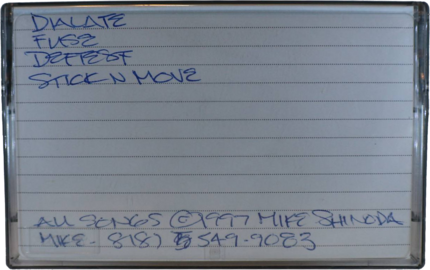 DIALATE
FUSE
DEFTEST
STICK N MOVE
ALL SONGS © 1997 MIKE SHINODA
MIKE - 818) 549-9083